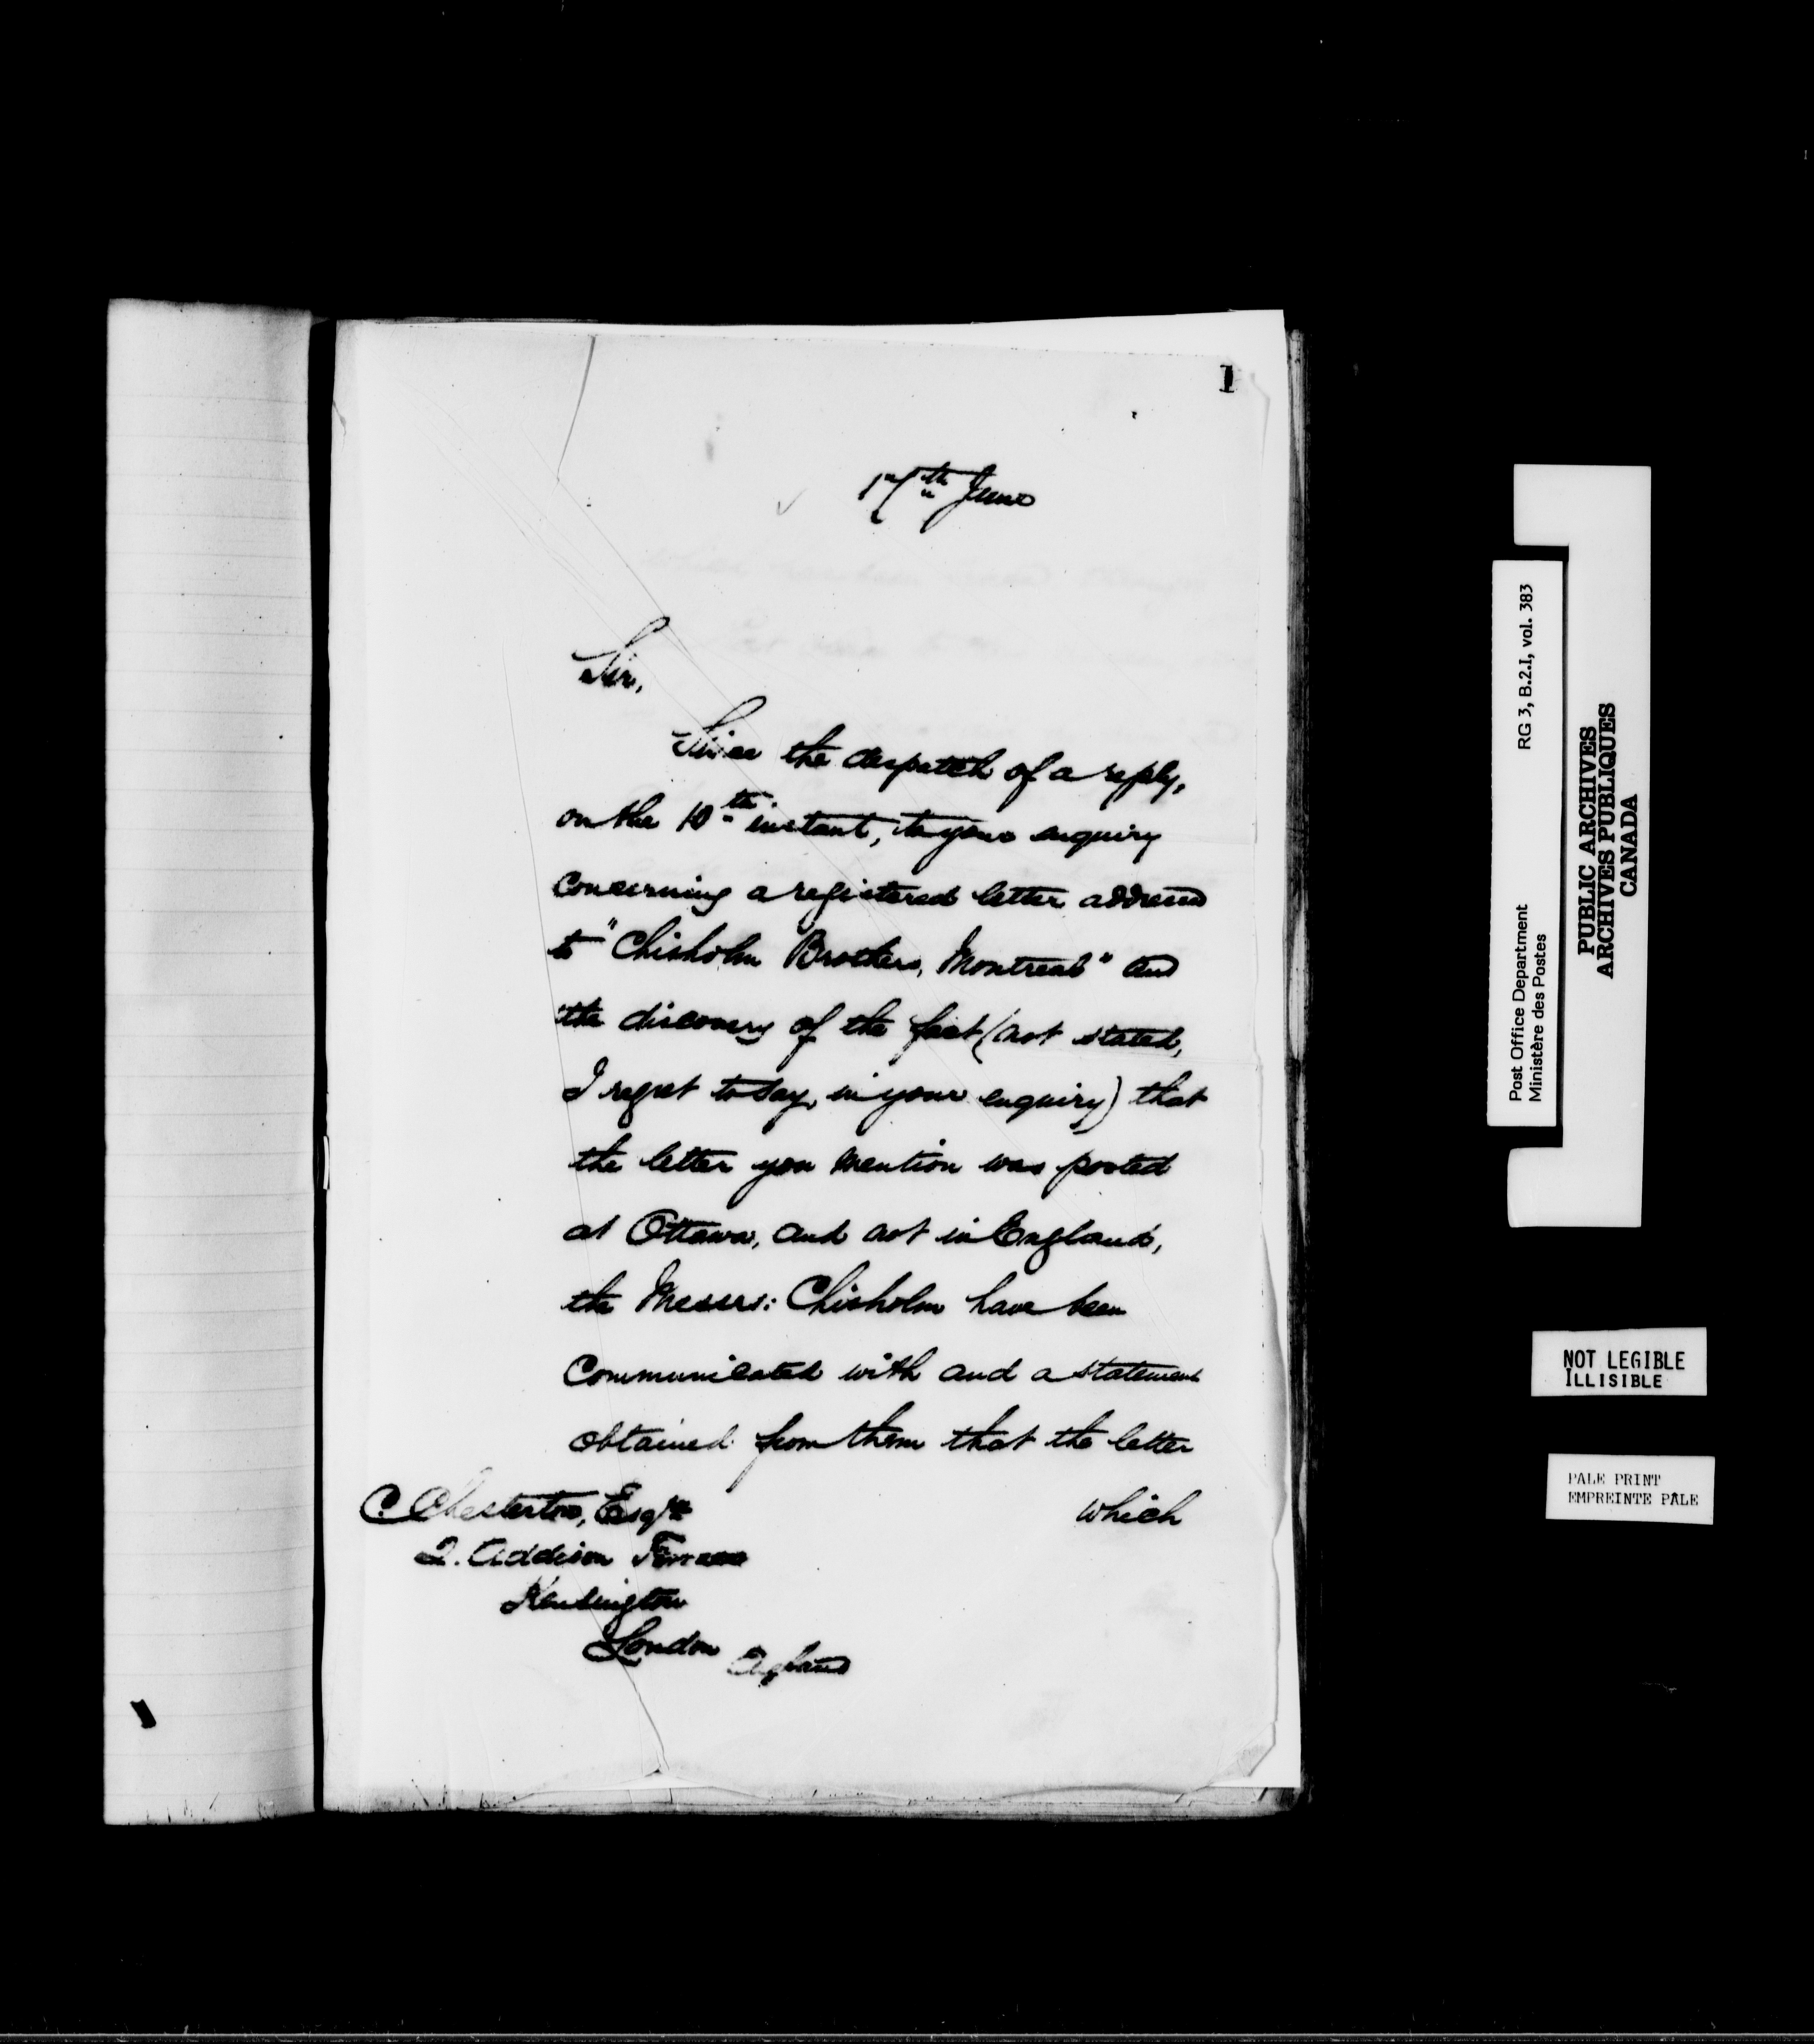 1
17th June
Sir,
Since the despatch of a reply,
on the 10th instant, to your enquiry
concerning a registered letter addressed
to "Chisholm Brothers, Montreal" and
the discovery of the fact (not stated,
I regret to say, in your enquiry) that
the letter you mention was posted
at Ottawa, and not in England,
the Messrs: Chisholm have been
communicated with and a statement
obtained from them that the letter
which
C. Chesterton, Esqre
2. Addison Terrace
Kensington
London England
Post Office Department RG 3, B.2.I, vol. 383
Ministère des Postes
PUBLIC ARCHIVES
ARCHIVES PUBLIQUES
CANADA
NOT LEGIBLE
ILLISIBLE
PALE PRINT
EMPREINTE PÂLE